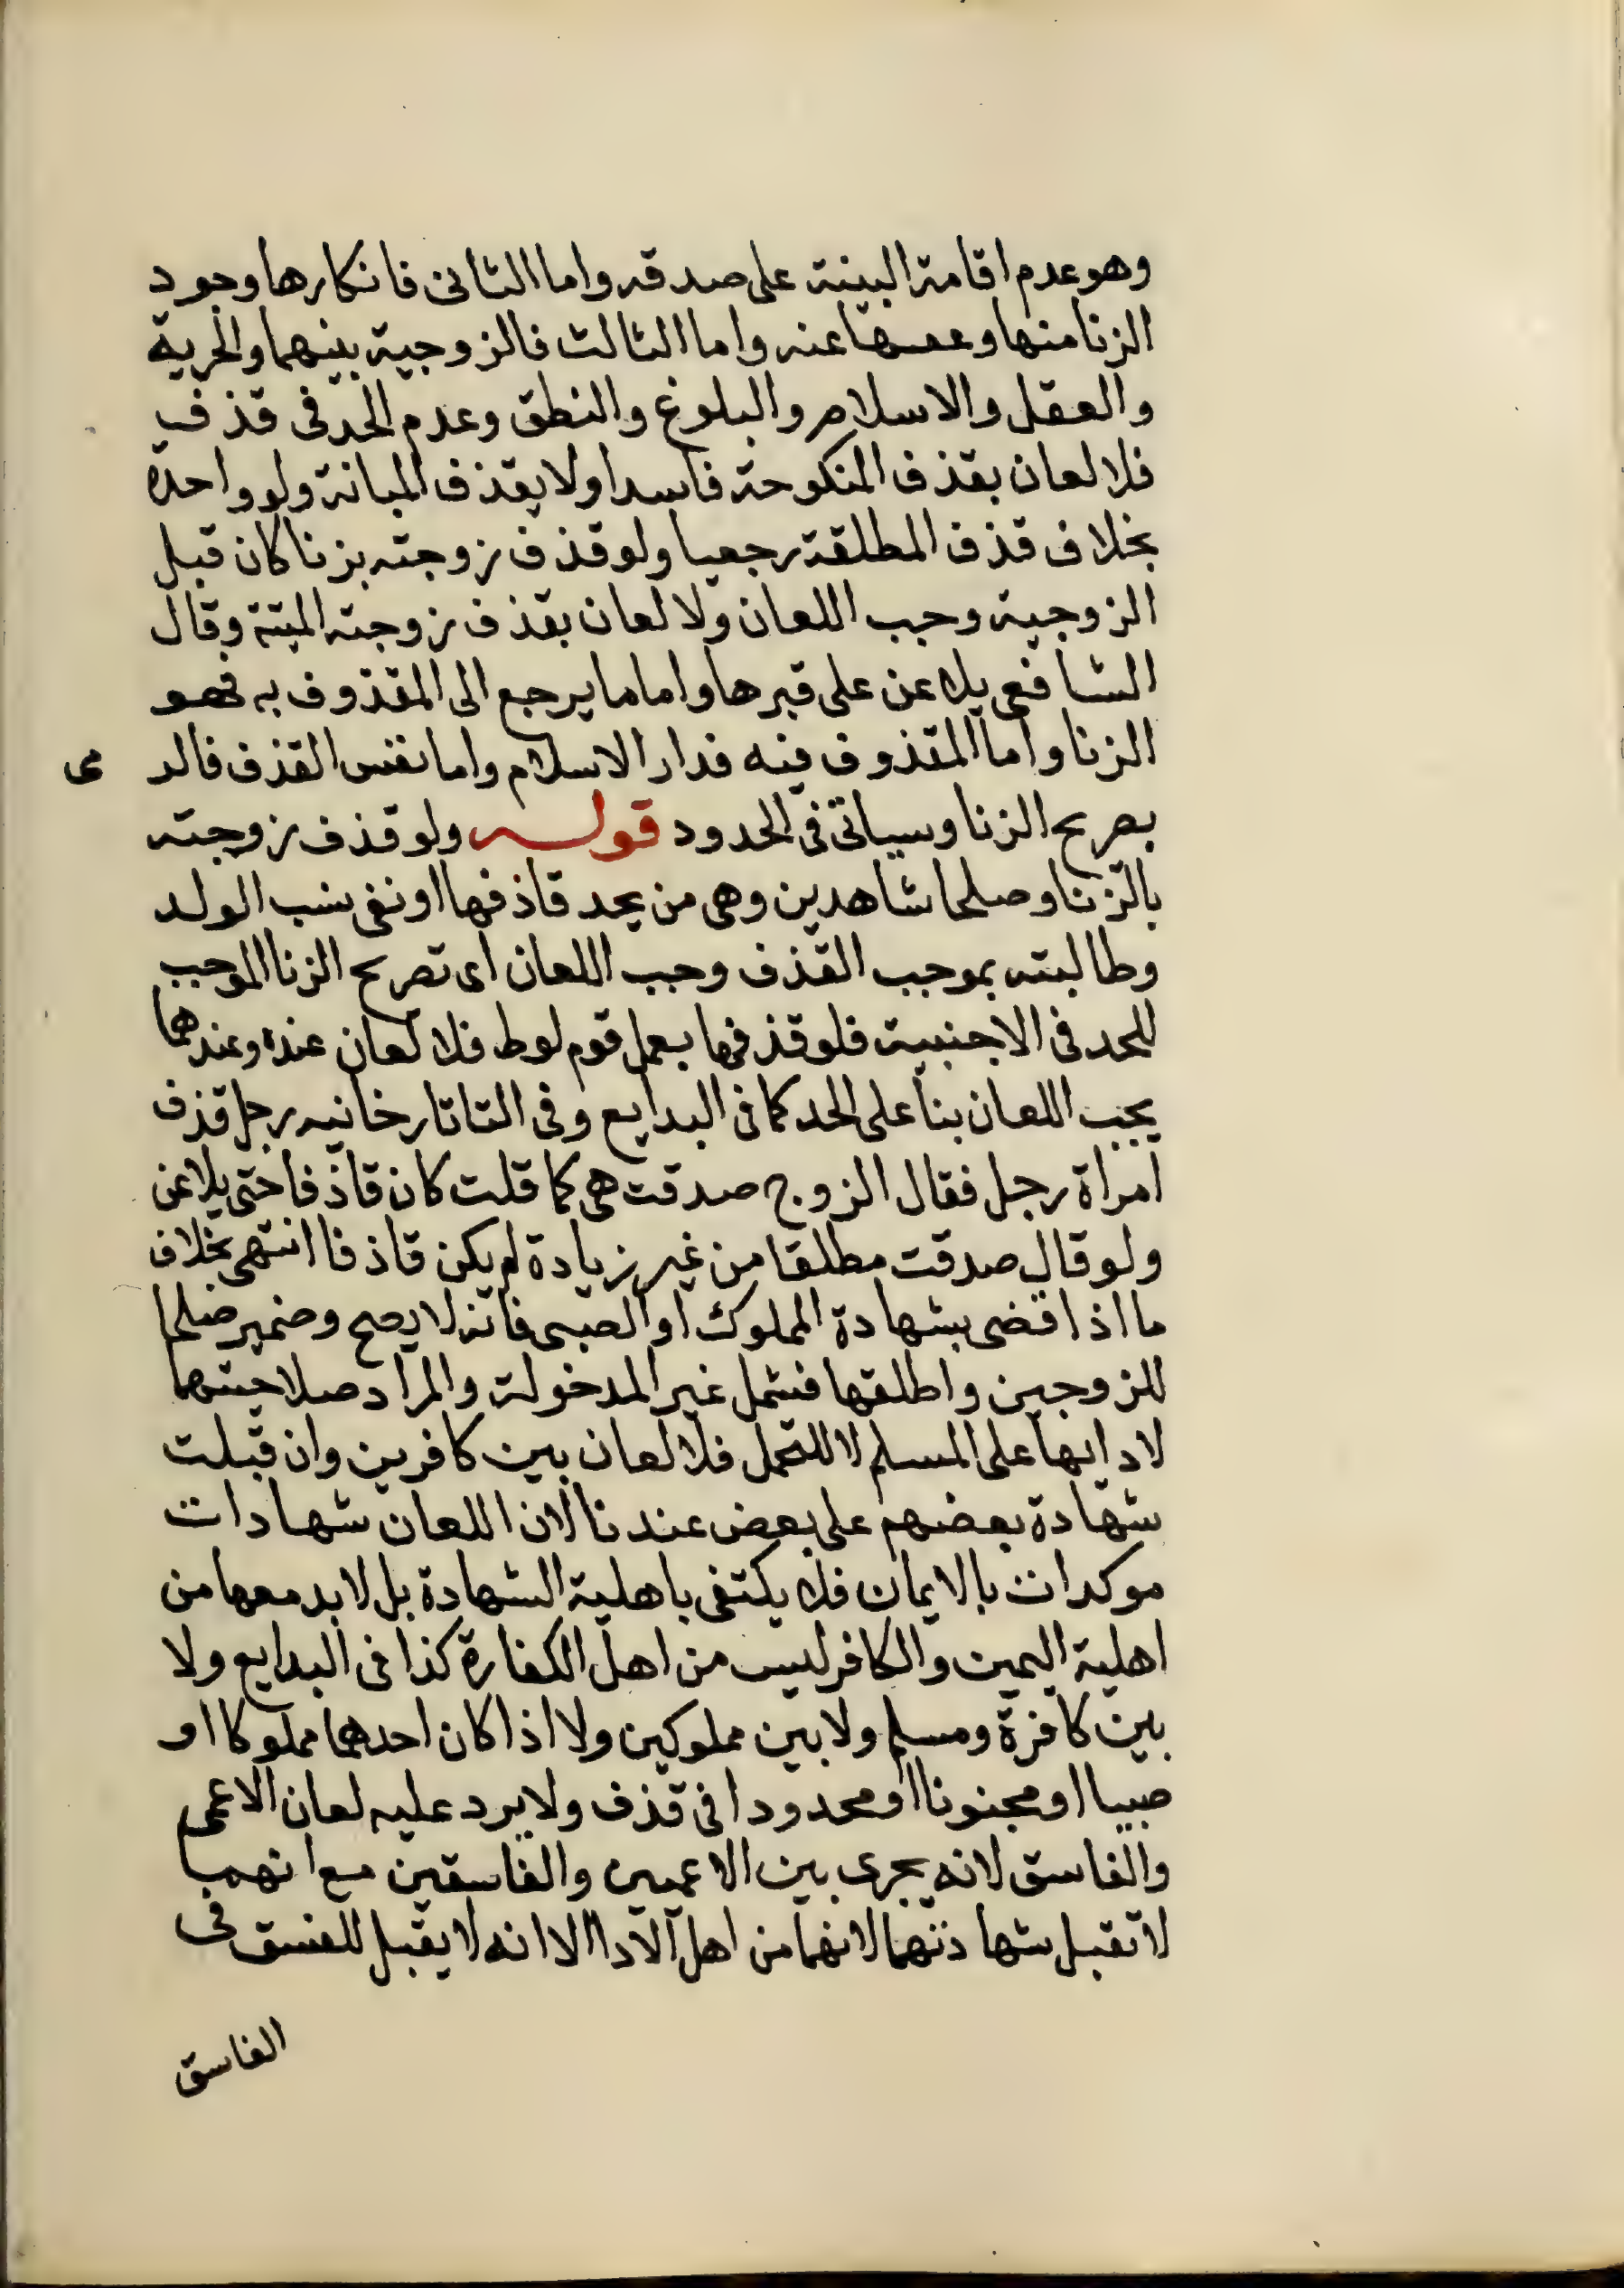 وهو عدم اقامة البينة على صدقه واما الثانى فانكارها وجود
الزنا منها وعفتها عنه واما الثالث فالزوجية بينهما والحرية
والعقل والاسلام والبلوغ والنطق وعدم الحد فى قذف
فلا لعان بقذف المنكوحة فاسدا ولا بقذف المبانة ولو واحدة
بخلاف قذف المطلقة رجعيا ولو قذف زوجته بزنا كان قبل
الزوجية وجب اللعان ولا لعان بقذف زوجته الميتة وقال
الشافعى يلاعن على قبرها واما ما يرجع الى المقذوف به فهو
الزنا واما المقذوف فيه فدار الاسلام واما نفس القذف فالر مى
بصريح الزنا وسياتى فى الحدود قوله ولو قذف زوجته
بالزنا وصلحا شاهدين وهى من يحد قاذفها او نفى نسب الولد
وطالبته بموجب القذف وجب اللعان اى تصريح الزنا الموجب
للحد فى الاجنبية فلو قذفها بعمل قوم لوط فلا لعان عنده وعندهما
يجب اللعان بنا على الحد كما فى البدايع وفى التاتارخانيه رجل قذف
امراة رجل فقال الزوج صدقت هى كما قلت كان قاذفا حتى يلاعن
ولو قال صدقت مطلقا من غير زيادة لم يكن قاذفا انتهى بخلاف
ما اذا قضى بشهادة المملوك او الصبى فانه لا يصح وضمير صلحا
للزوجين واطلقها فشمل غير المدخولة والمراد صلاحيتهما
لادايها على المسلم لا للتحمل فلا لعان بين كافرين وان قبلت
شهادة بعضهم على بعض عندنا لان اللعان شهادات
موكدات بالايمان فلا يكتفى باهلية الشهادة بل لا بد معها من
اهلية اليمين والكافر ليس من اهل الكفارة كذا فى البدايع ولا
بين كافرة ومسلم ولا بين مملوكين ولا اذا كان احدهما مملوكا او
صبيا او مجنونا او محدودا فى قذف ولا يرد عليه لعان الاعمى
والفاسق لانه يجرى بين الاعميين والفاسقين مع انهما
لا تقبل شهادتهما لانهما من اهل الادا الا انه لا يقبل للفسق فى
الفاسق